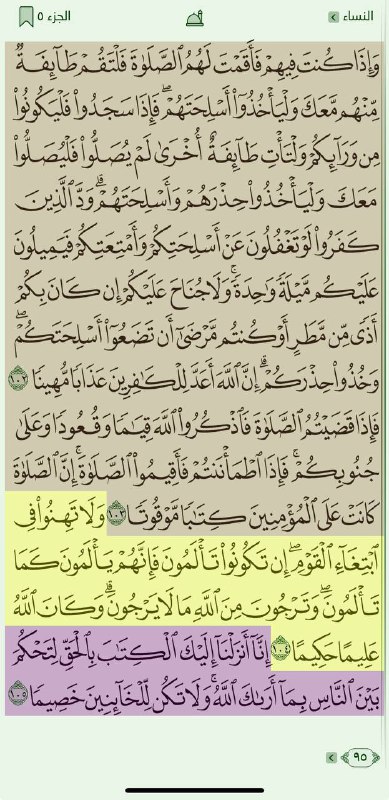 النساء الجزء ٥
وَإِذَا كُنتَ فِيهِمْ فَأَقَمْتَ لَهُمُ ٱلصَّلَوٰةَ فَلْتَقُمْ طَآئِفَةٌ
مِّنْهُم مَّعَكَ وَلْيَأْخُذُوٓا۟ أَسْلِحَتَهُمْۖ فَإِذَا سَجَدُوا۟ فَلْيَكُونُوا۟
مِن وَرَآئِكُمْ وَلْتَأْتِ طَآئِفَةٌ أُخْرَىٰ لَمْ يُصَلُّوا۟ فَلْيُصَلُّوا۟
مَعَكَ وَلْيَأْخُذُوا۟ حِذْرَهُمْ وَأَسْلِحَتَهُمْۗ وَدَّ ٱلَّذِينَ
كَفَرُوا۟ لَوْ تَغْفُلُونَ عَنْ أَسْلِحَتِكُمْ وَأَمْتِعَتِكُمْ فَيَمِيلُونَ
عَلَيْكُم مَّيْلَةً وَٰحِدَةًۚ وَلَا جُنَاحَ عَلَيْكُمْ إِن كَانَ بِكُمْ
أَذًى مِّن مَّطَرٍ أَوْ كُنتُم مَّرْضَىٰٓ أَن تَضَعُوٓا۟ أَسْلِحَتَكُمْۖ
وَخُذُوا۟ حِذْرَكُمْۗ إِنَّ ٱللَّهَ أَعَدَّ لِلْكَٰفِرِينَ عَذَابًا مُّهِينًا ١٠٢
فَإِذَا قَضَيْتُمُ ٱلصَّلَوٰةَ فَٱذْكُرُوا۟ ٱللَّهَ قِيَٰمًا وَقُعُودًا وَعَلَىٰ
جُنُوبِكُمْۚ فَإِذَا ٱطْمَأْنَنتُمْ فَأَقِيمُوا۟ ٱلصَّلَوٰةَۚ إِنَّ ٱلصَّلَوٰةَ
كَانَتْ عَلَى ٱلْمُؤْمِنِينَ كِتَٰبًا مَّوْقُوتًا ١٠٣ وَلَا تَهِنُوا۟ فِى
ٱبْتِغَآءِ ٱلْقَوْمِۖ إِن تَكُونُوا۟ تَأْلَمُونَ فَإِنَّهُمْ يَأْلَمُونَ كَمَا
تَأْلَمُونَۖ وَتَرْجُونَ مِنَ ٱللَّهِ مَا لَا يَرْجُونَۗ وَكَانَ ٱللَّهُ
عَلِيمًا حَكِيمًا ١٠٤ إِنَّآ أَنزَلْنَآ إِلَيْكَ ٱلْكِتَٰبَ بِٱلْحَقِّ لِتَحْكُمَ
بَيْنَ ٱلنَّاسِ بِمَآ أَرَىٰكَ ٱللَّهُۚ وَلَا تَكُن لِّلْخَآئِنِينَ خَصِيمًا ١٠٥
٩٥